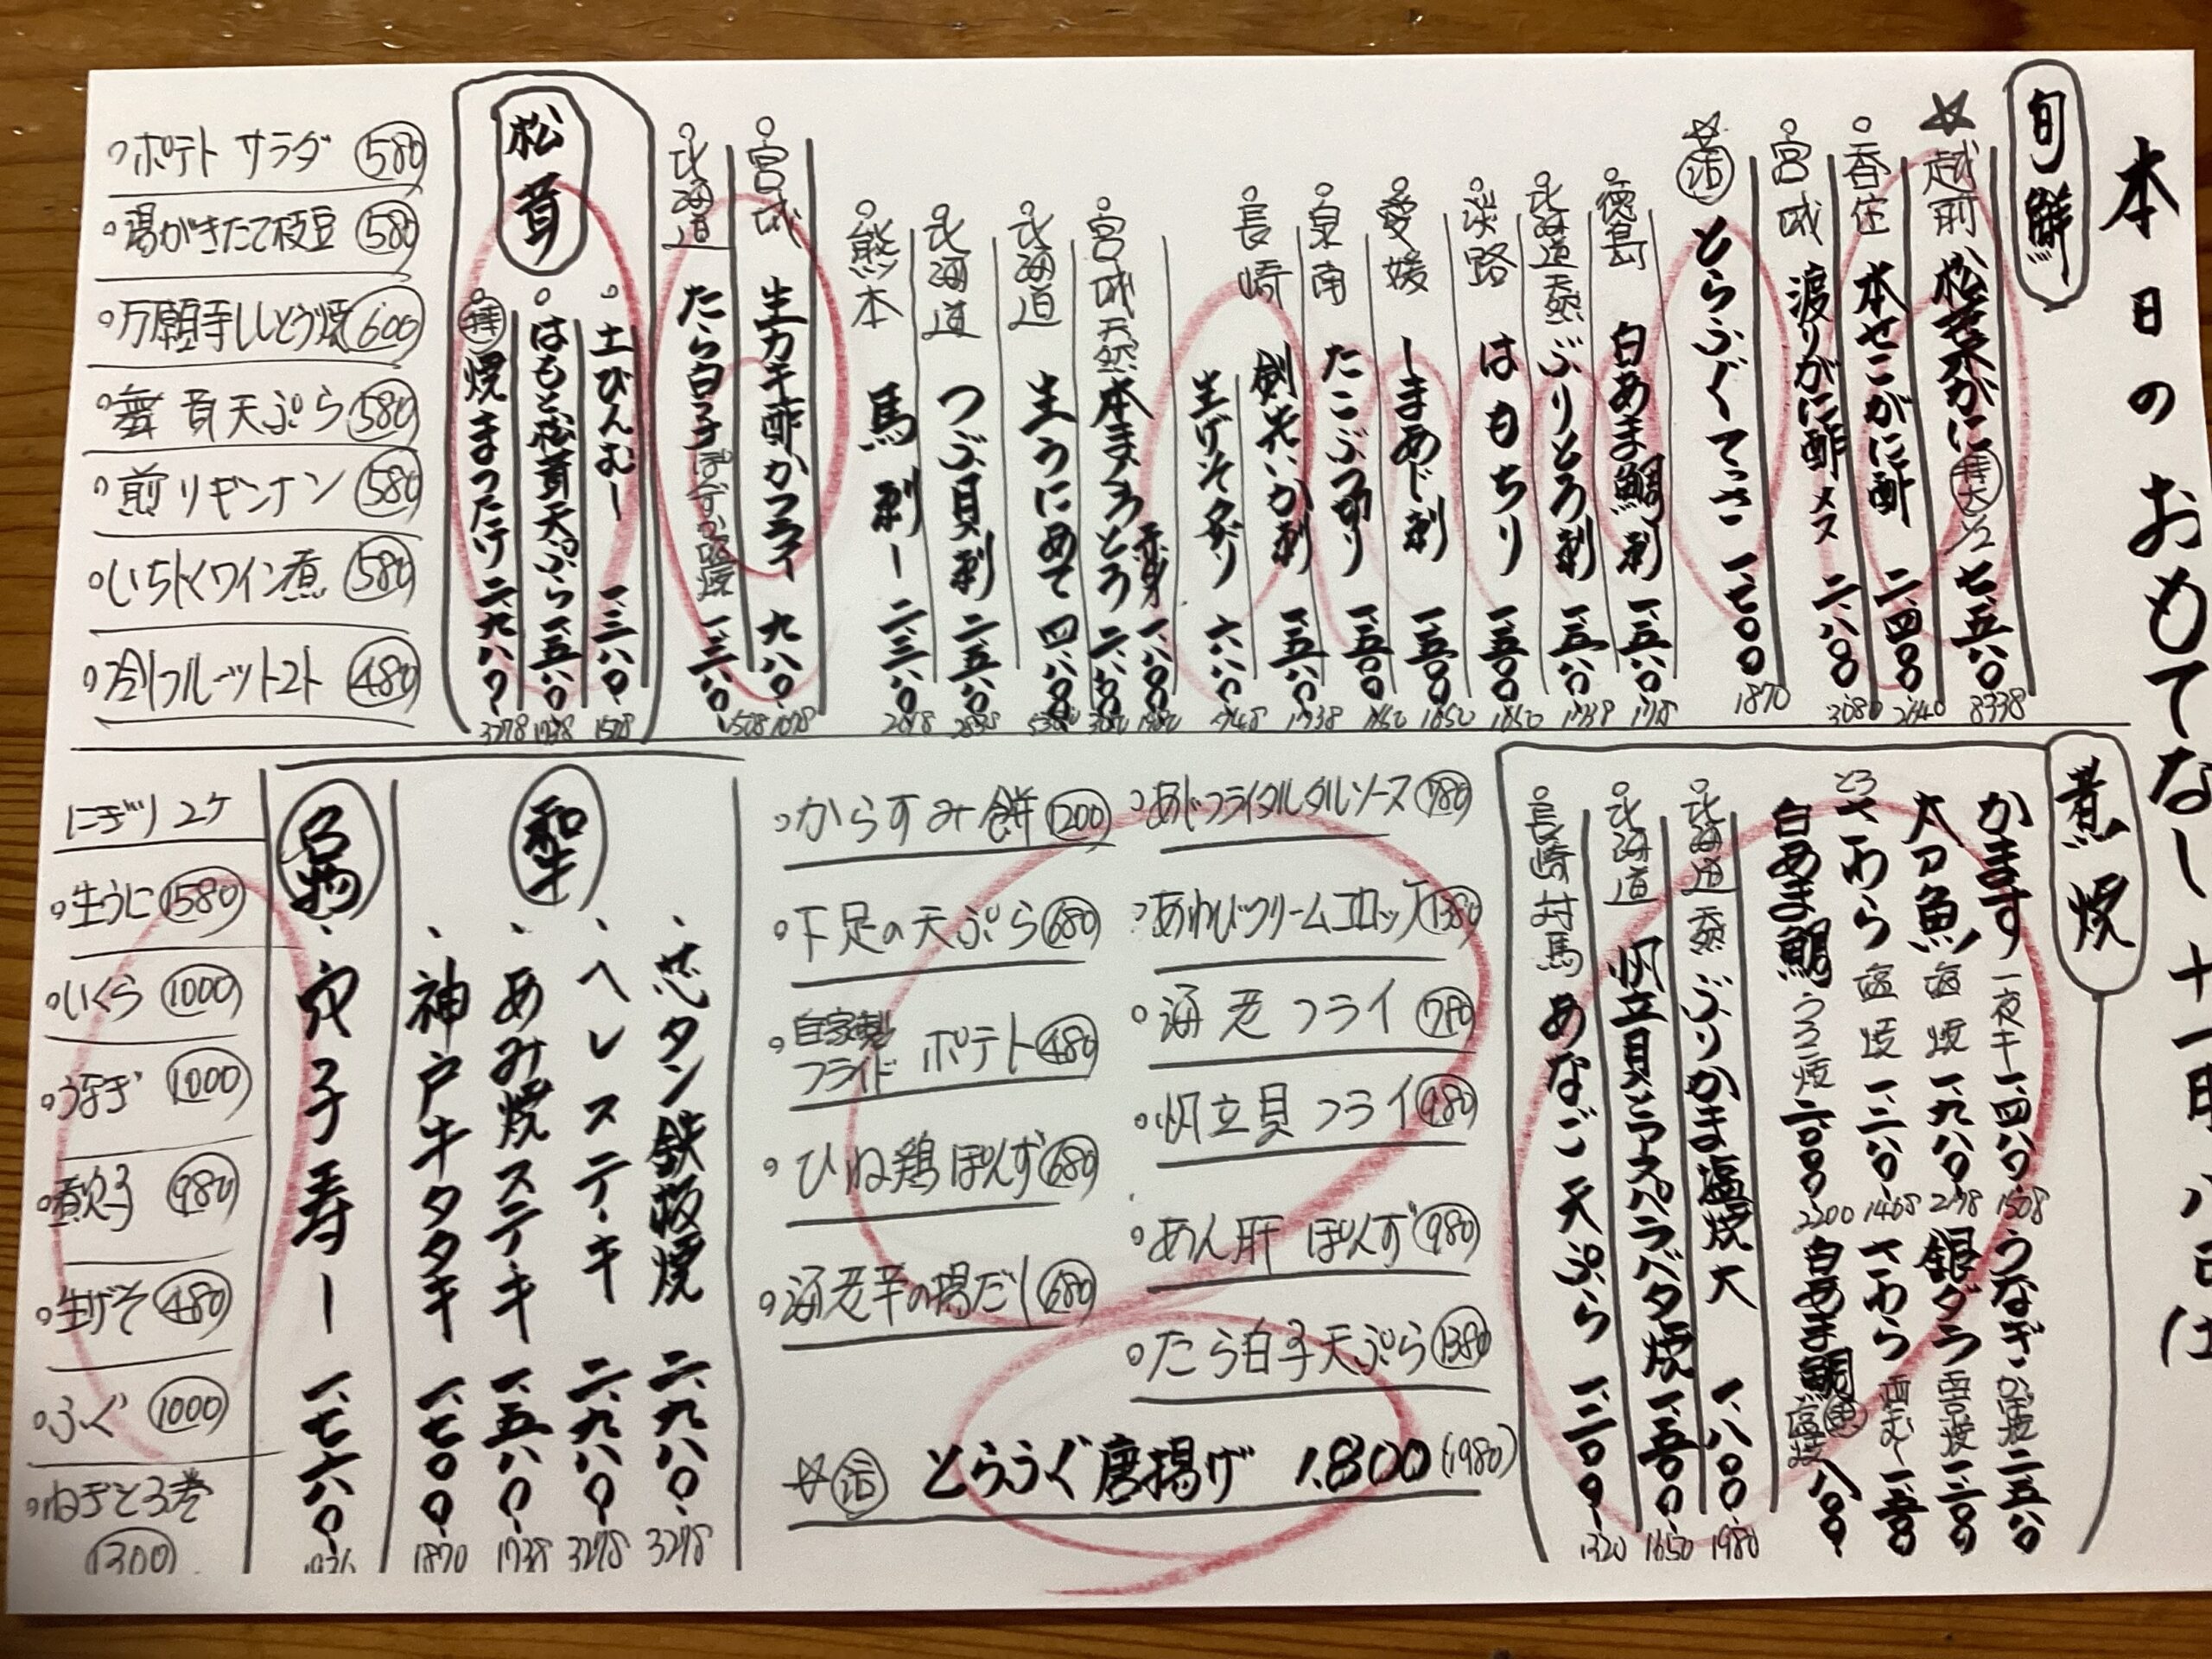 本日のおもてなし十一月八日は
旬鮮
☆越前 松葉水がに 特大 1/2 七、五八〇 8338
香住 本せこがに酢 二、四〇〇 2640
宮城 渡りがに酢 メス 二、八〇〇 3080
☆活 とらふぐてっさ 一、七〇〇 1870
徳島 白あま鯛刺 一、五八〇
北海道天然 ぶりとろ刺 一、五八〇 1738
淡路 はもちり 一、五〇〇 1650
愛媛 しまあじ刺 一、五〇〇 1650
泉南 たこぶつ切り 一、五〇〇 1650
長崎 剣先いか刺 一、五八〇 1738
生げそ造り 六八〇 748
宮城天然 本まぐろ とろ 二、八〇〇 3080
赤身 一、八〇〇 1980
北海道 生うにあて 四、八〇〇
北海道 つぶ貝刺 二、五八〇 2838
熊本 馬刺し 二、三八〇 2618
宮城 生カキ酢かフライ 九八〇 1078
北海道 たら白子
松茸
土びんむし 一、三八〇 1518
はもと松茸天ぷら 一、五八〇 1738
焼まつたけ 二、九八〇 3278
ポテトサラダ 580
湯がきたて枝豆 580
万願寺ししとう焼 600
舞茸天ぷら 580
煎りギンナン 580
いちじくワイン煮 580
冷しフルーツトマト 480
煮焼
かます 一夜干 一、四八〇
うなぎ かば焼 二、五八〇
太刀魚 塩焼 一、九八〇 2178
銀ダラ 西京焼 一、三〇〇
とろさわら 塩焼 一、三八〇
さわら 西京むし 一、五〇〇
白あま鯛 うろこ焼 二、〇〇〇 2200
白あま鯛 塩焼 八〇〇
北海道天然 ぶりかま塩焼 大 一、八〇〇 1980
北海道 帆立貝とアスパラバタ焼 一、五〇〇 1650
長崎対馬 あなご天ぷら 一、二〇〇 1320
あじフライタルタルソース 780
あわびクリームコロッケ 1380
海老フライ 780
帆立貝フライ 980
あん肝ぽんず 980
たら白子天ぷら 1380
からすみ餅 1200
下足の天ぷら 680
自家製フライドポテト 480
ひね鶏ぽんず 680
海老芋の揚だし 680
☆活 とらふぐ唐揚げ 1.800 (1980)
和牛
芯タン鉄板焼 二、九八〇 3278
ヘレステーキ 二、九八〇 3278
あみ焼ステーキ 一、五八〇 1738
神戸牛タタキ 一、七〇〇 1870
名物
穴子寿し 一、七六〇
にぎり2ケ
生うに 1580
いくら 1000
うなぎ 1000
煮穴子 980
生げそ 480
ふぐ 1000
ねぎとろ巻 1300